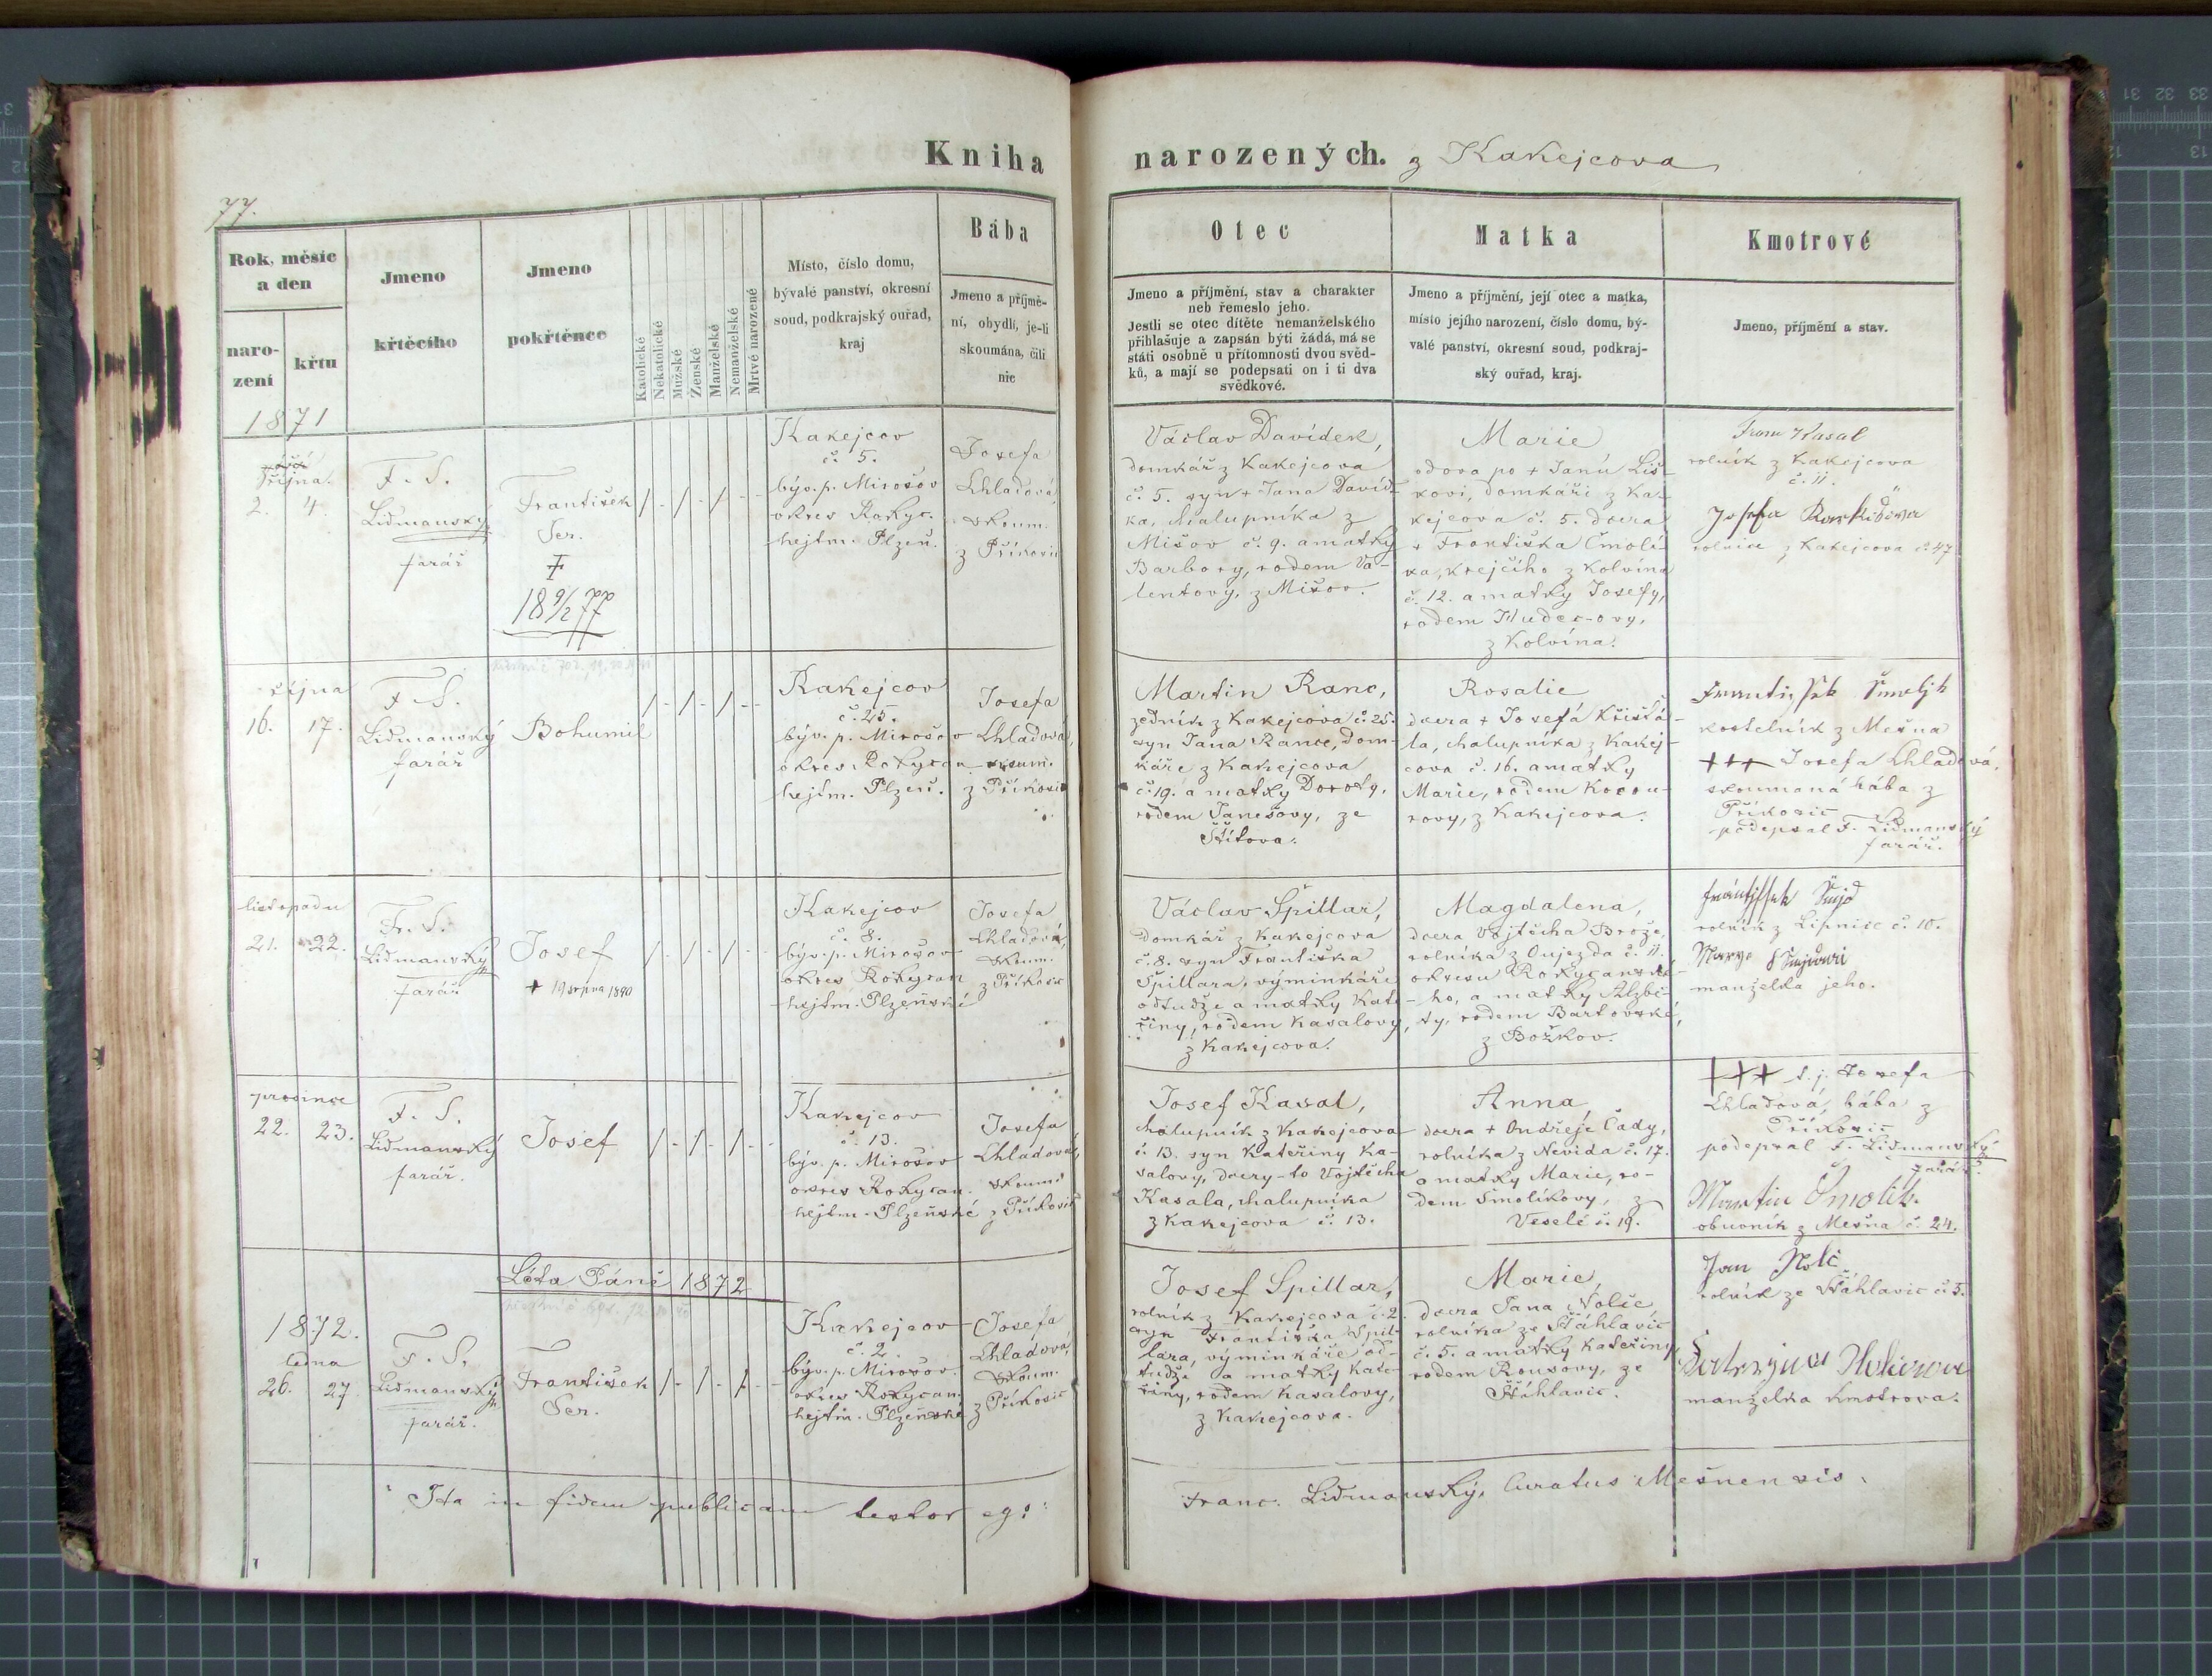 Kniha
narozených. z Kakejcova
77.
Rok, měsíc
a den
naro-
zení
křtu
Jmeno
křtěcího
Jmeno
pokřtěnce
Katolické
Nekatolické
Mužské
Ženské
Manželské
Nemanželské
Mrtvé narozené
Místo, číslo domu,
bývalé panství, okresní
soud, podkrajský ouřad,
kraj
Bába
Jmeno a příjmě-
ní, obydlí, je-li
skoumána, čili
nic
Otec
Jmeno a příjmění, stav a charakter
neb řemeslo jeho.
Jestli se otec dítěte nemanželského
přihlašuje a zapsán býti žádá, má se
státi osobně u přítomnosti dvou svěd-
ků, a mají se podepsati on i ti dva
svědkové.
Matka
Jmeno a příjmění, její otec a matka,
místo jejího narození, číslo domu, bý-
valé panství, okresní soud, podkraj-
ský ouřad, kraj.
Kmotrové
Jmeno, příjmění a stav.
1871
října
2. 4.
F. S.
Lidmanský
farář
František
Ser.
18 9/2 77
Kakejcov
č. 5.
býv. p. Mirošov
okres Rokyc.
hejtm. Plzeň.
Josefa
Chladová
skoum.
z Příkosic
Václav Davídek,
domkář z Kakejcova
č. 5. syn + Jana Davíd-
ka, chalupníka z
Mišov č. 9. a matky
Barbory, rodem Va-
lentovy, z Mišov.
Marie
vdova po + Janú Liš-
kovi, domkáři z Ka-
kejcova č. 5. dcera
+ Františka Čmolí-
ka, krejčího z Kolvína
č. 12. a matky Josefy,
rodem Hudec-ovy,
z Kolvína.
Kasal
rolník z Kakejcova
č. 11.
Josefa
rolnice z Kakejcova č. 47
října
16. 17.
F. S.
Lidmanský
farář
Bohumil
Kakejcov
č. 25.
býv. p. Mirošov
okres Rokycan
hejtm. Plzeň.
Josefa
Chladová,
skoum.
z Příkosic
Martin Ranc,
zedník z Kakejcova č. 25.
syn Jana Rance, dom-
káře z Kakejcova
č. 19. a matky Doroty,
rodem Janešovy, ze
Štítova.
Rosalie
dcera + Josefa Křišťá-
la, chalupníka z Kakej-
cova č. 16. a matky
Marie, rodem Kocou-
rovy, z Kakejcova.
Frantissek Smoljk
kostelník z Mešna
+++ Josefa Chladová.
skoumaná bába z
Příkosic
podepsal F. Lidmanský
farář.
listopadu
21. 22.
Fr. S.
Lidmanský
farář
Josef
+ 19 srpna 1890
Kakejcov
č. 8.
býv. p. Mirošov
okres Rokycan
hejtm. Plzeňské
Josefa
Chladová,
skoum.
z Příkosic
Václav Špillar,
domkář z Kakejcova
č. 8. syn Františka
Špillara, výminkáře
odtudže a matky Kate-
řiny, rodem Kasalovy,
z Kakejcova.
Magdalena,
dcera Vojtěcha Brože,
rolníka z Oujezda č. 11.
okresu Rokycanské-
ho, a matky Alžbě-
ty, rodem Bartovské,
z Božkov.
Frantissek Šmjd
rolník z Lipnice č. 10.
manželka jeho.
prosince
22. 23.
F. S.
Lidmanský
farář.
Josef
Kakejcov
č. 13.
býv. p. Mirošov
okres Rokycan.
hejtm. Plzeňské
Josefa
Chladová,
skoum.
z Příkosic
Josef Kasal,
chalupník z Kakejcova
č. 13. syn Kateřiny Ka-
salovy, dcery-to Vojtěcha
Kasala, chalupníka
z Kakejcova č. 13.
Anna
dcera + Ondřeje Čady,
rolníka z Nevida č. 17.
a matky Marie, ro-
dem Smolíkovy, z
Veselé č. 19.
+++ t. j. Josefa
Chladová, bába z
Příkosic
podepsal F. Lidmanský
farář.
Martin Čmolík.
obuvník z Mešna č. 24.
Léta Páně 1872
1872.
ledna
26. 27
F. S.
Lidmanský
farář.
František
Ser.
Kakejcov
č. 2.
býv. p. Mirošov.
okres Rokycan.
hejtm. Plzeňské
Josefa
Chladová,
skoum.
z Příkosic
Josef Spillar,
rolník z Kakejcova č. 2.
syn Františka Spil-
lara, výminkáře od-
tudže a matky Kate-
řiny, rodem Kasalovy,
z Kakejcova.
Marie,
dcera Jana Nolče,
rolníka ze Šťáhlavic
č. 5. a matky Kateřiny,
rodem Rousovy, ze
Šťáhlavic.
Jan Nolč
rolník ze Šťáhlavic č. 5.
manželka kmotrova.
Ita in fidem publicam testor ego:
Franc. Lidmanský, Curatus Mešnensis.